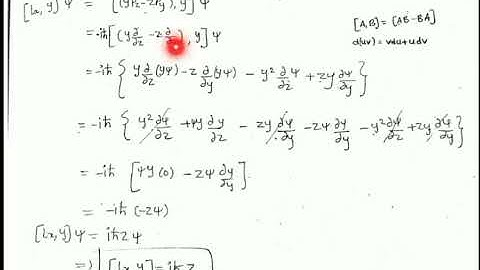 [Lx, y]ψ = [(yPz - zPy), y]ψ
[A,B] = [AB - BA]
d(uv) = vdu + udv
= -iħ[(y ∂/∂z - z ∂/∂y), y]ψ
= -iħ { y ∂/∂z (yψ) - z ∂/∂y (yψ) - y² ∂ψ/∂z + zy ∂ψ/∂y }
= -iħ { y² ∂ψ/∂z + ψy ∂y/∂z - zy ∂ψ/∂y - zψ ∂y/∂y - y² ∂ψ/∂z + zy ∂ψ/∂y }
= -iħ [ψy(0) - zψ ∂y/∂y]
= -iħ (-zψ)
[Lx, y]ψ = iħzψ
=> [Lx, y] = iħz